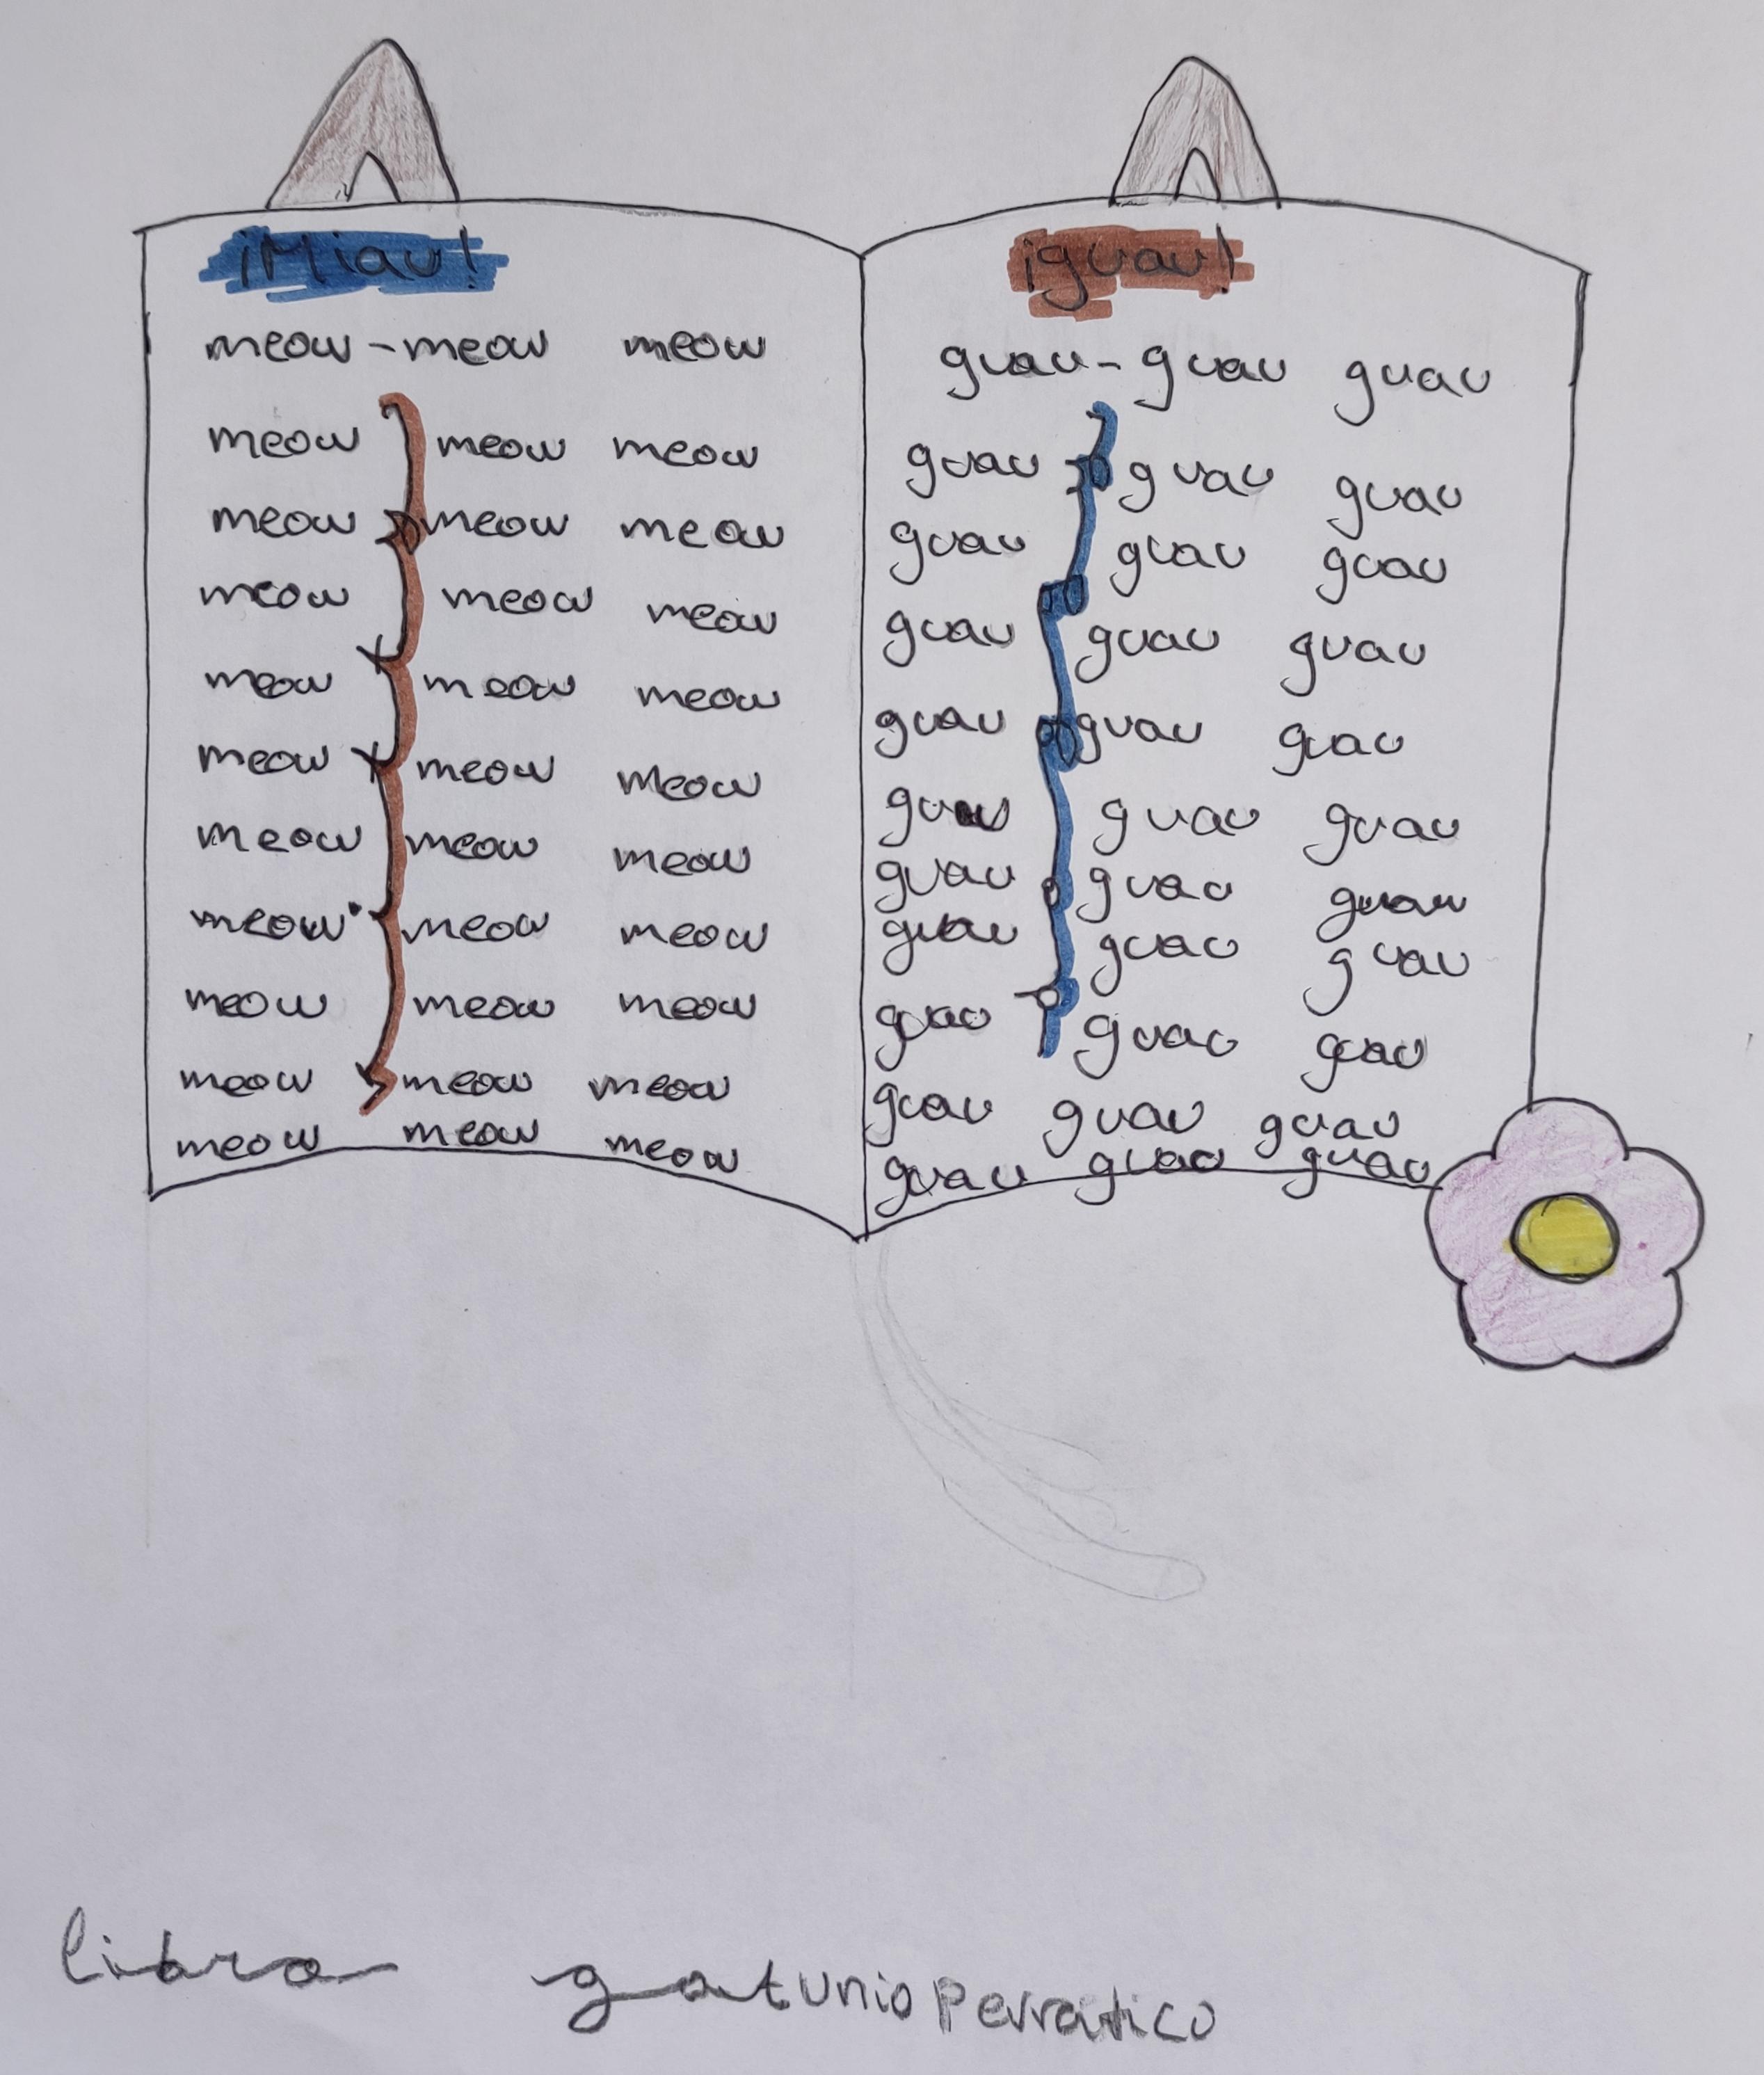 ¡Miau!
meow - meow meow
meow meow meow
meow meow meow
meow meow meow
meow meow meow
meow meow meow
meow meow meow
meow meow meow
meow meow meow
meow meow meow
meow meow meow
¡guau!
guau - guau guau
guau guau guau
guau guau guau
guau guau guau
guau guau guau
guau guau guau
guau guau guau
guau guau guau
guau guau guau
guau guau guau
guau guau guau
libro gatunio perratico